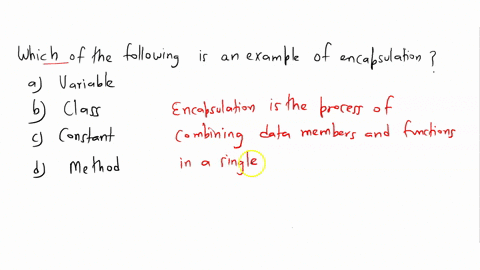 Which of the following is an example of encapsulation?
a) Variable
b) Class
c) Constant
d) Method
Encapsulation is the process of
Combining data members and functions
in a single